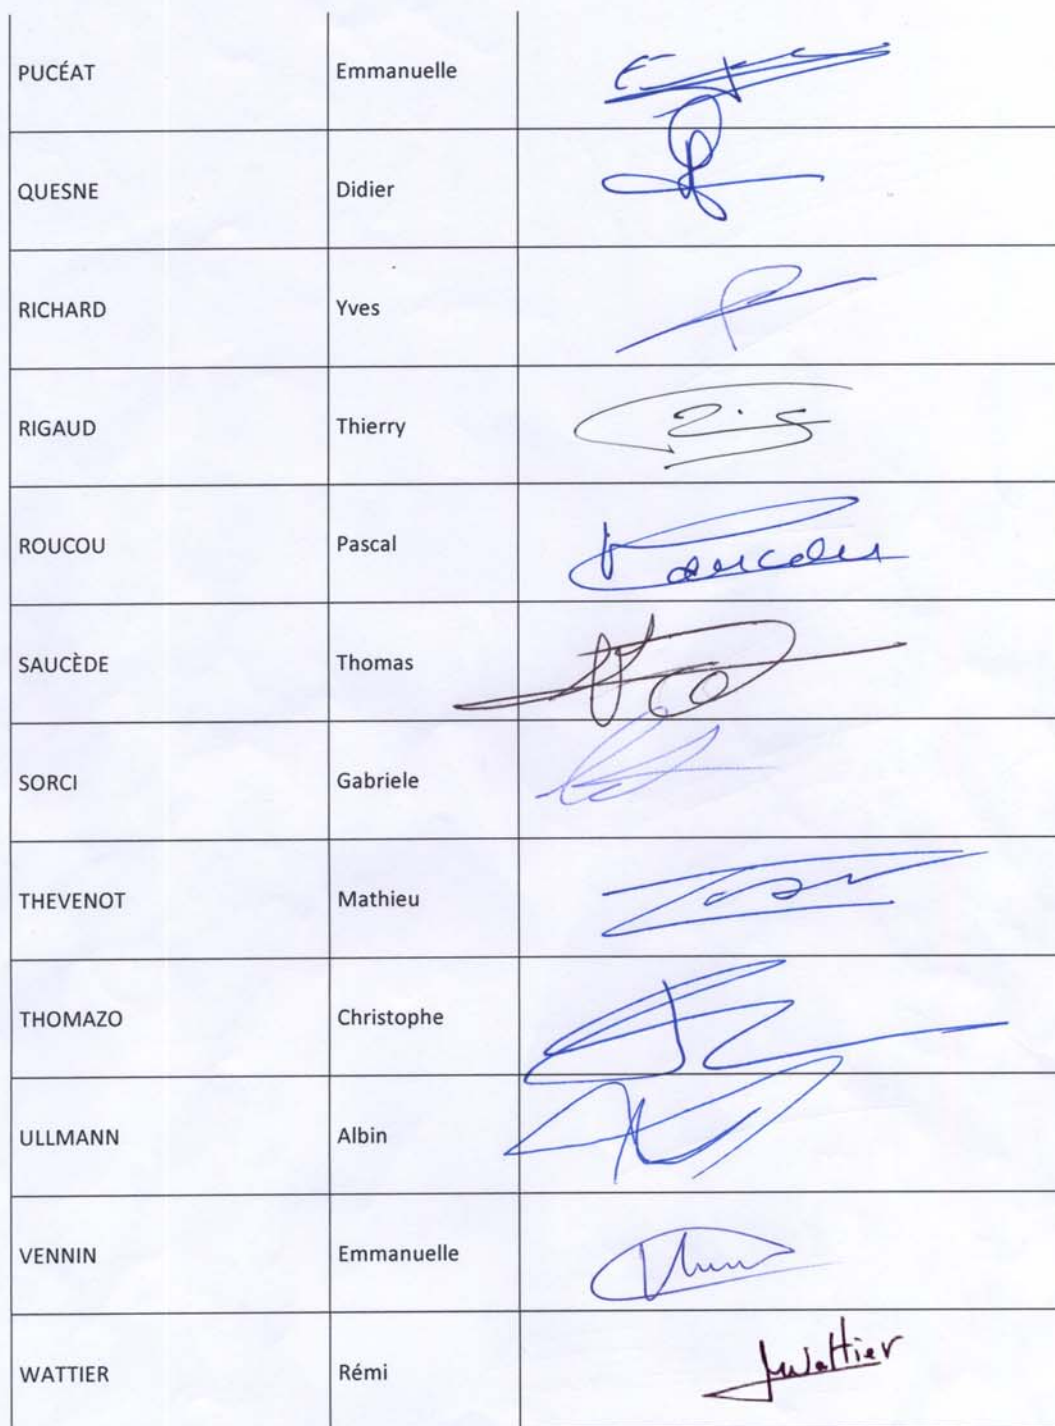 PUCÉAT Emmanuelle
QUESNE Didier
RICHARD Yves
RIGAUD Thierry
ROUCOU Pascal Roucou
SAUCÈDE Thomas
SORCI Gabriele
THEVENOT Mathieu
THOMAZO Christophe
ULLMANN Albin
VENNIN Emmanuelle
WATTIER Rémi Wattier